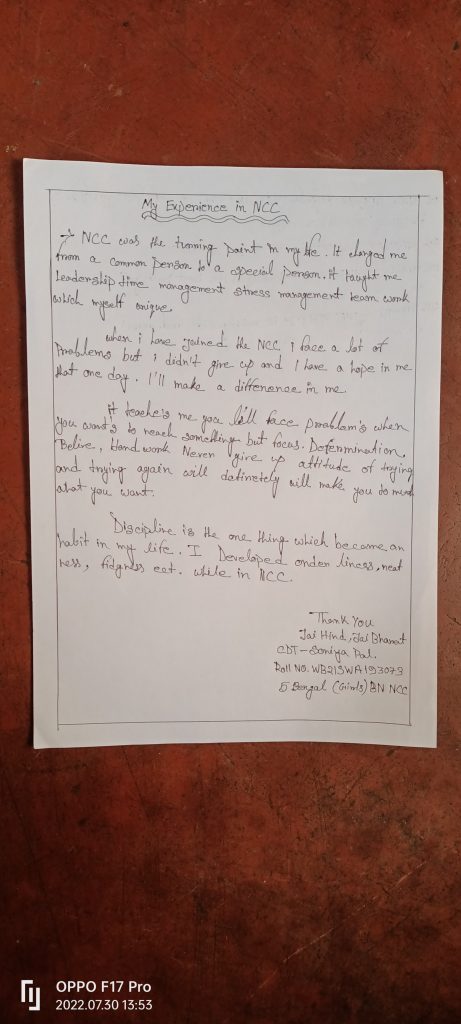 My Experience in NCC
→ NCC was the turnning point in my life. It changed me
from a common person to a special person. It taught me
Leadership time management stress management team work
which myself unique.
when i have joined the NCC, i face a lot of
Problems but i didn't give up and I have a hope in me
that one day. I'll make a difference in me.
it teache's me you will face problem's when
you want's to reach something but focus. Determination,
Belive, Hard work Never give up attitude of trying
and trying again will definetely will make you to
what you want.
Discipline is the one thing which became an
habit in my life. I Developed order liness, neat
ness, ect. while in NCC.
Thank You
Jai Hind, Jai Bharat
CDT - Soniya Pal.
Roll NO. WB21SWA153073
5 Bengal (Girls) BN NCC
OPPO F17 Pro
2022.07.30 13:53